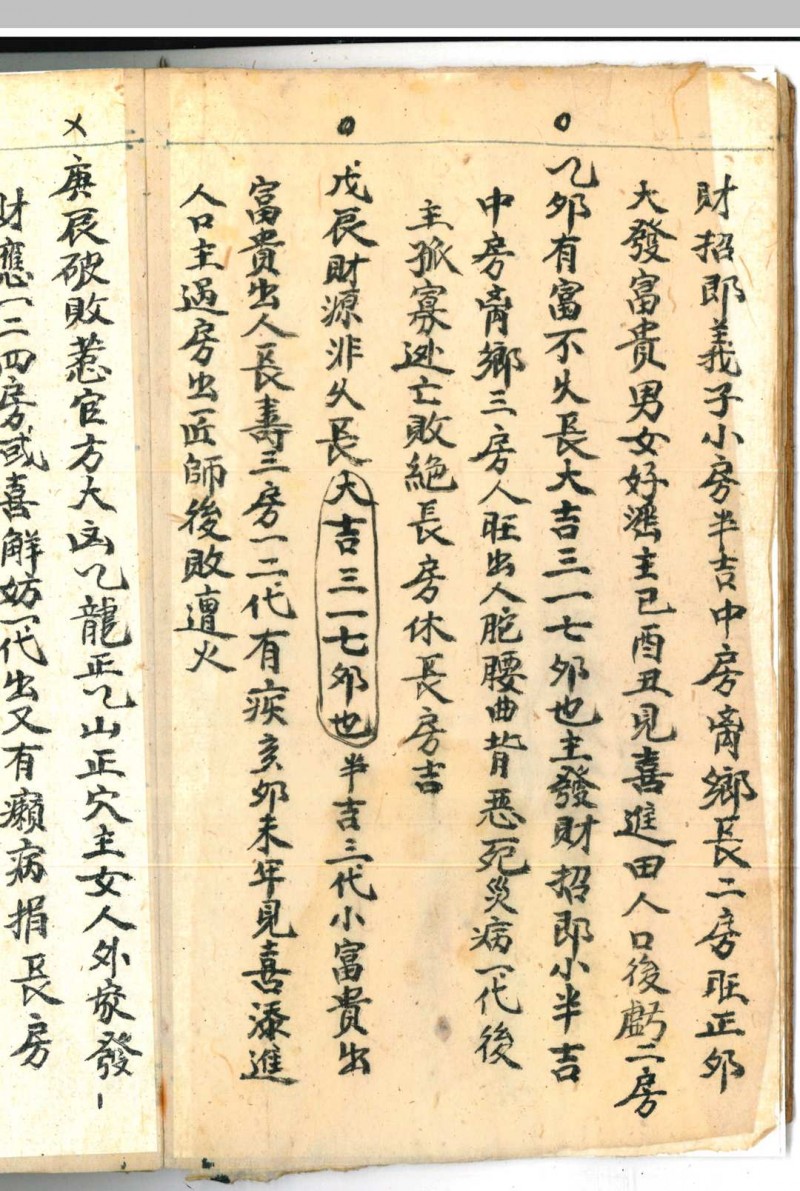 財招郎義子小房半吉中房離鄉長二房旺正夘
大發富貴男女好主巳酉丑見喜進田人口後虧二房
乙夘有富不久長大吉三一七夘也主發財招郎小半吉
中房離鄉三房人旺出人駝腰曲背惡死災病一代後
主孤寡逃亡敗絕長房休長房吉
戊辰財源非久長大吉三一七夘也半吉三代小富貴出
富貴出人長壽三房一二代有疾亥夘未年見喜添進
人口主過房出匠師後敗遭火
庚辰破敗惹官方大凶乙龍正乙山正穴主女人外家發
財應一二四房或喜解妨一代出又有癩病損長房